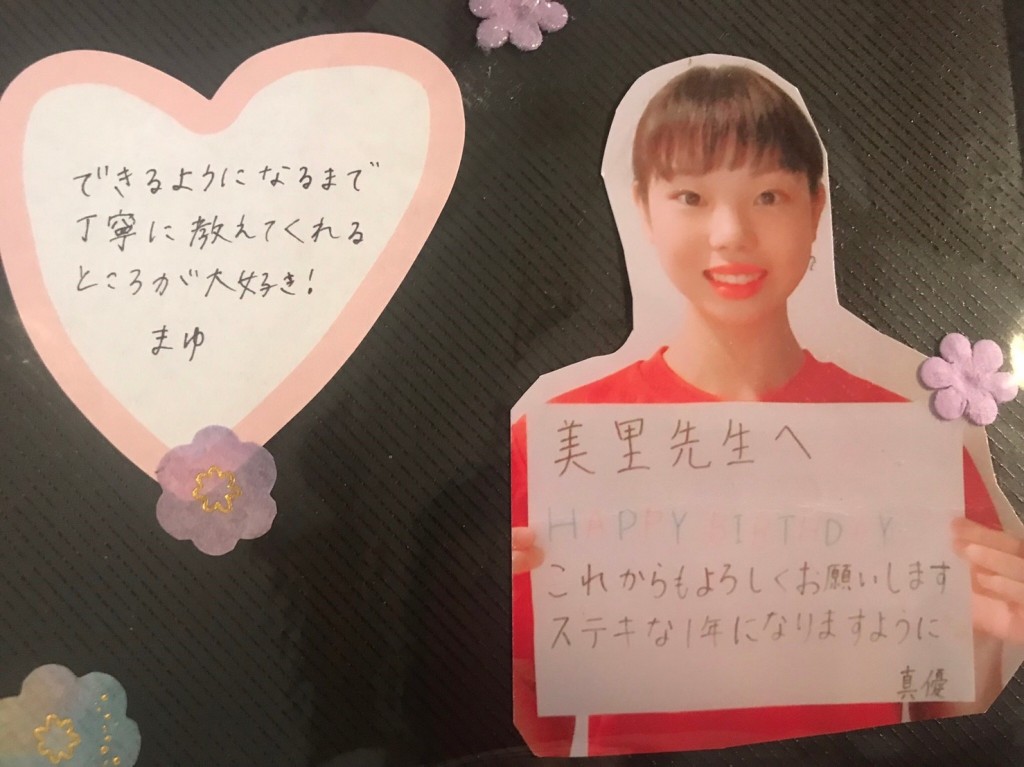 できるようになるまで
丁寧に教えてくれる
ところが大好き!
まゆ
美里先生へ
HAPPY BIRTHDAY
これからもよろしくお願いします
ステキな1年になりますように
真優